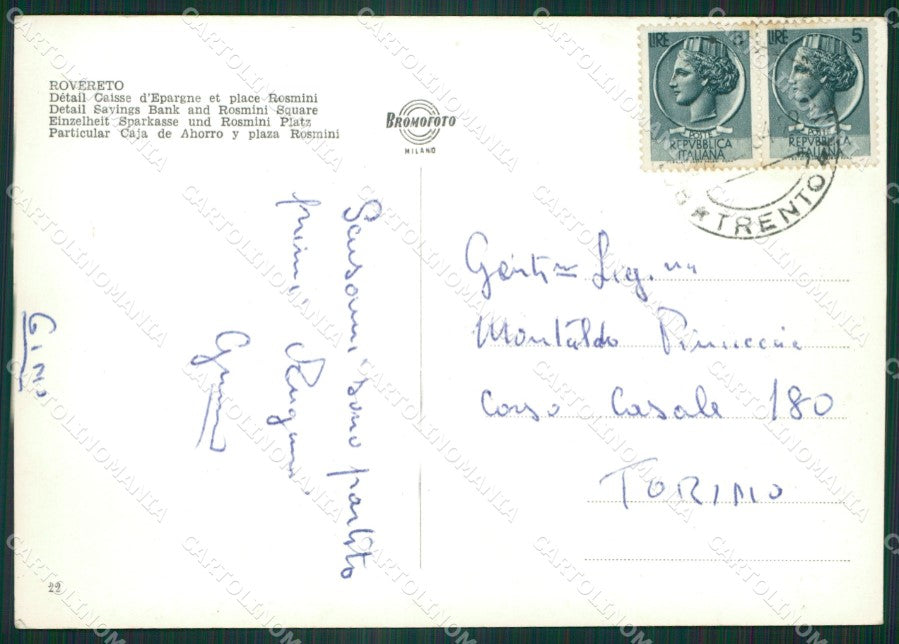 ROVERETO
Détail Caisse d'Epargne et place Rosmini
Detail Savings Bank and Rosmini Square
Einzelheit Sparkasse und Rosmini Platz
Particular Caja de Ahorro y plaza Rosmini
BROMOFOTO
MILANO
LIRE 5
POSTE
REPVBBLICA
ITALIANA
LIRE 5
POSTE
REPVBBLICA
ITALIANA
TRENTO
Scusami, sono partito
prima
GINO
Gent.ma Sig.na
Montaldo Pinuccia
Corso Casale 180
TORINO
22
CARTOLINOMANIA